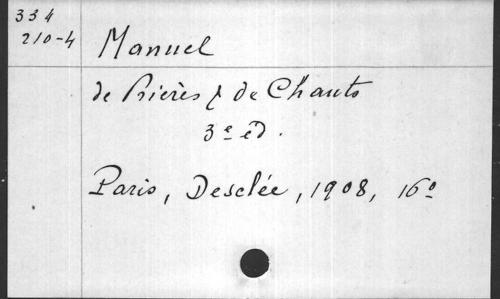 334
210-4
Manuel
de Prières & de Chants
3e éd.
Paris, Desclée, 1908, 16o